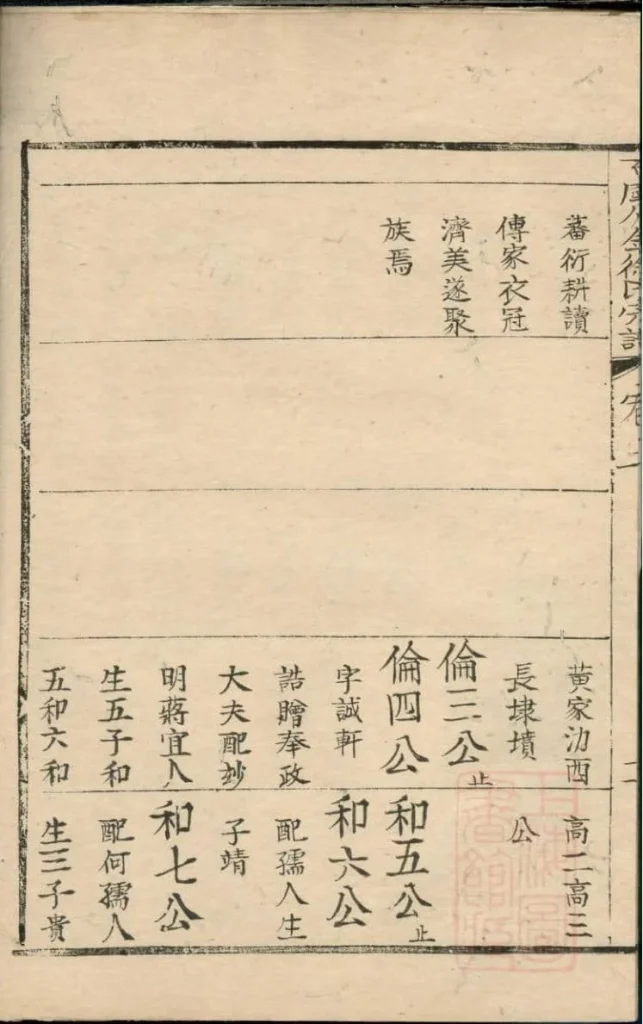 蕃衍耕讀
傳家衣冠
濟美遂聚
族焉
黄家沏西
長埭墳
倫三公止
倫四公
字誠軒
誥贈奉政
大夫配妙
明蔣宜人
生五子和
五和六和
高二高三
公
和五公止
和六公
配孺人生
子靖
和七公
配何孺人
生三子貴